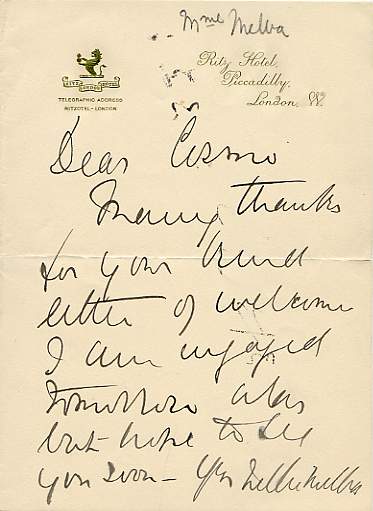 Mme Melba
RITZ HOTEL
LONDON
TELEGRAPHIC ADDRESS
RITZOTEL-LONDON
Ritz Hotel,
Piccadilly,
London. W.
Dear Cosmo
Many thanks
for your kind
letter of welcome
I am engaged
tomorrow alas
but hope to see
you soon - Yrs Nellie Melba